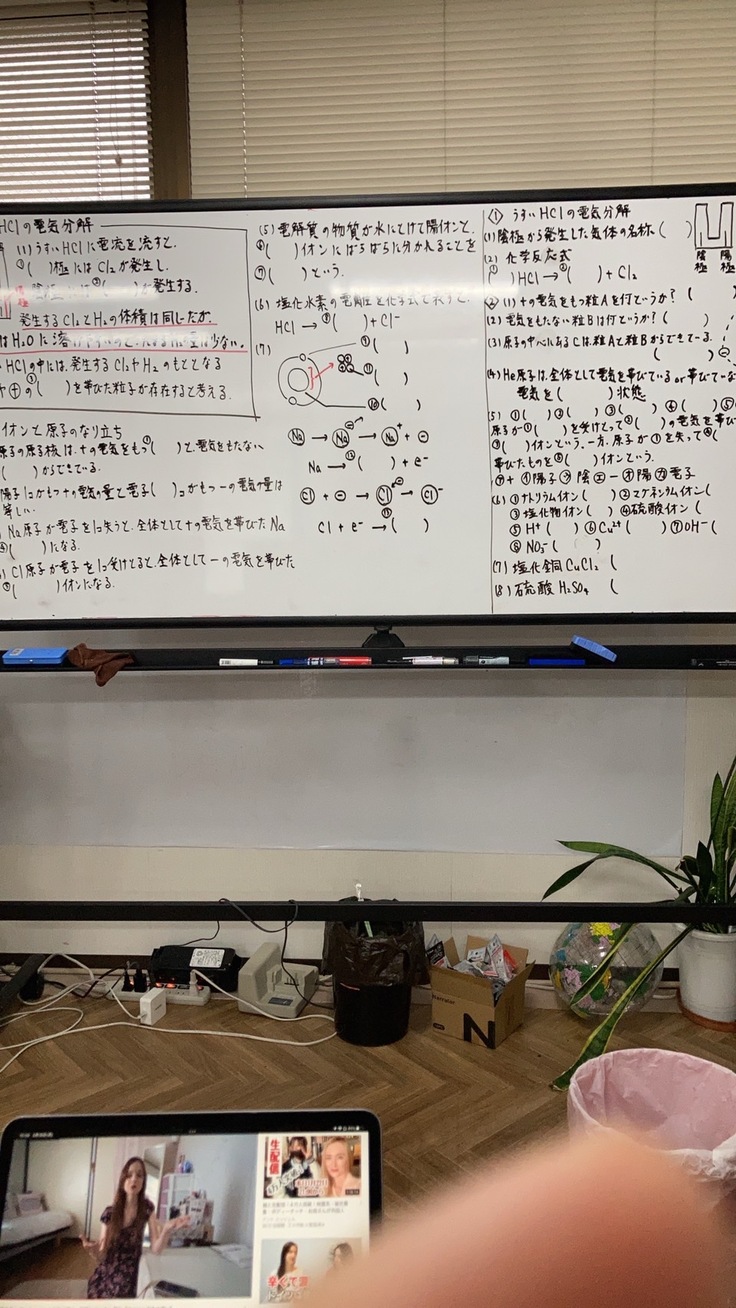 HClの電気分解
(1) うすいHClに電流を流すと、
①(　　)極にはCl₂が発生し、
陰極には②(　　)が発生する。
発生するCl₂とH₂の体積は同じだが、
はH₂Oに溶けやすい
HClの中には、発生するCl₂やH₂のもととなる
や⊕の③(　　)を帯びた粒子が存在すると考える。
イオンと原子のなり立ち
原子の原子核は、+の電気をもつ①(　　)と、電気をもたない
(　　)からできている。
陽子1コがもつ+の電気の量と電子(　　)コがもつ−の電気の量は
等しい。
Na原子が電子を1コ失うと、全体として+の電気を帯びたNa
④(　　)になる。
Cl原子が電子を1コ受けとると、全体として−の電気を帯びた
⑤(　　)イオンになる。
(5) 電解質の物質が水にとけて陽イオンと、
⑥(　　)イオンにばらばらに分かれることを
⑦(　　)という。
(6) 塩化水素の電離を化学式で表すと、
HCl → ⑧(　　) + Cl⁻
(7)
⑨(　　)
⑪(　　)
⑩(　　)
Na → Na → Na⁺ + ⊖
Na → (　　) + e⁻
Cl + ⊖ → Cl → Cl⁻
Cl + e⁻ → (　　)
① うすいHClの電気分解
(1) 陰極から発生した気体の名称 (　　)
陰極 陽極
(2) 化学反応式
(　)HCl → (　　) + Cl₂
② (1) +の電気をもつ粒Aを何というか? (
(2) 電気をもたない粒Bは何というか? (　　)
(3) 原子の中心にあるCは、粒Aと粒Bからできている。
(　　)
(4) He原子は、全体として電気を帯びているor帯びてな
電気を(　　)状態
(5) ①(　) ②(　) ③(　) ④(　) ⑤
原子が①(　　)を受けとって②(　　)の電気を帯び
③(　　)イオンという。一方、原子が①を失って④(
帯びたものを⑤(　　)イオンという。
⑦+ ④陽子 ⑨陰 ㊁− ㋔陽 ㋕電子
(6) ①ナトリウムイオン (　　) ②マグネシウムイオン (
③塩化物イオン (　　) ④硫酸イオン (
⑤ H⁺ (　　) ⑥ Cu²⁺ (　　) ⑦ OH⁻ (
⑧ NO₃⁻ (　　)
(7) 塩化銅 CuCl₂ (
(8) 石硫酸 H₂SO₄ (
N
生配信